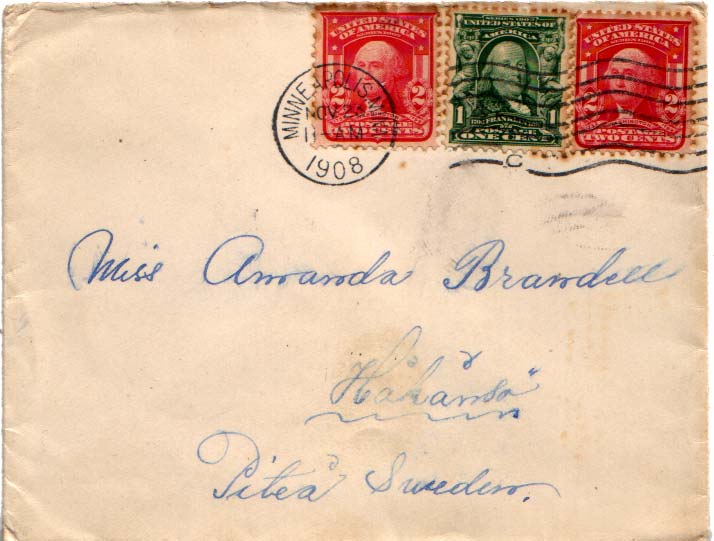 UNITED STATES OF AMERICA
SERIES 1902
2 2
POSTAGE
SERIES 1902
UNITED STATES OF AMERICA
1 1
FRANKLIN
POSTAGE
ONE CENT
UNITED STATES OF AMERICA
SERIES 1902
2 2
POSTAGE
TWO CENTS
MINNEAPOLIS, MINN.
NOV
11 AM
1908
C
Miss Amanda Brandell
Håkånsö
Piteå Sweden.